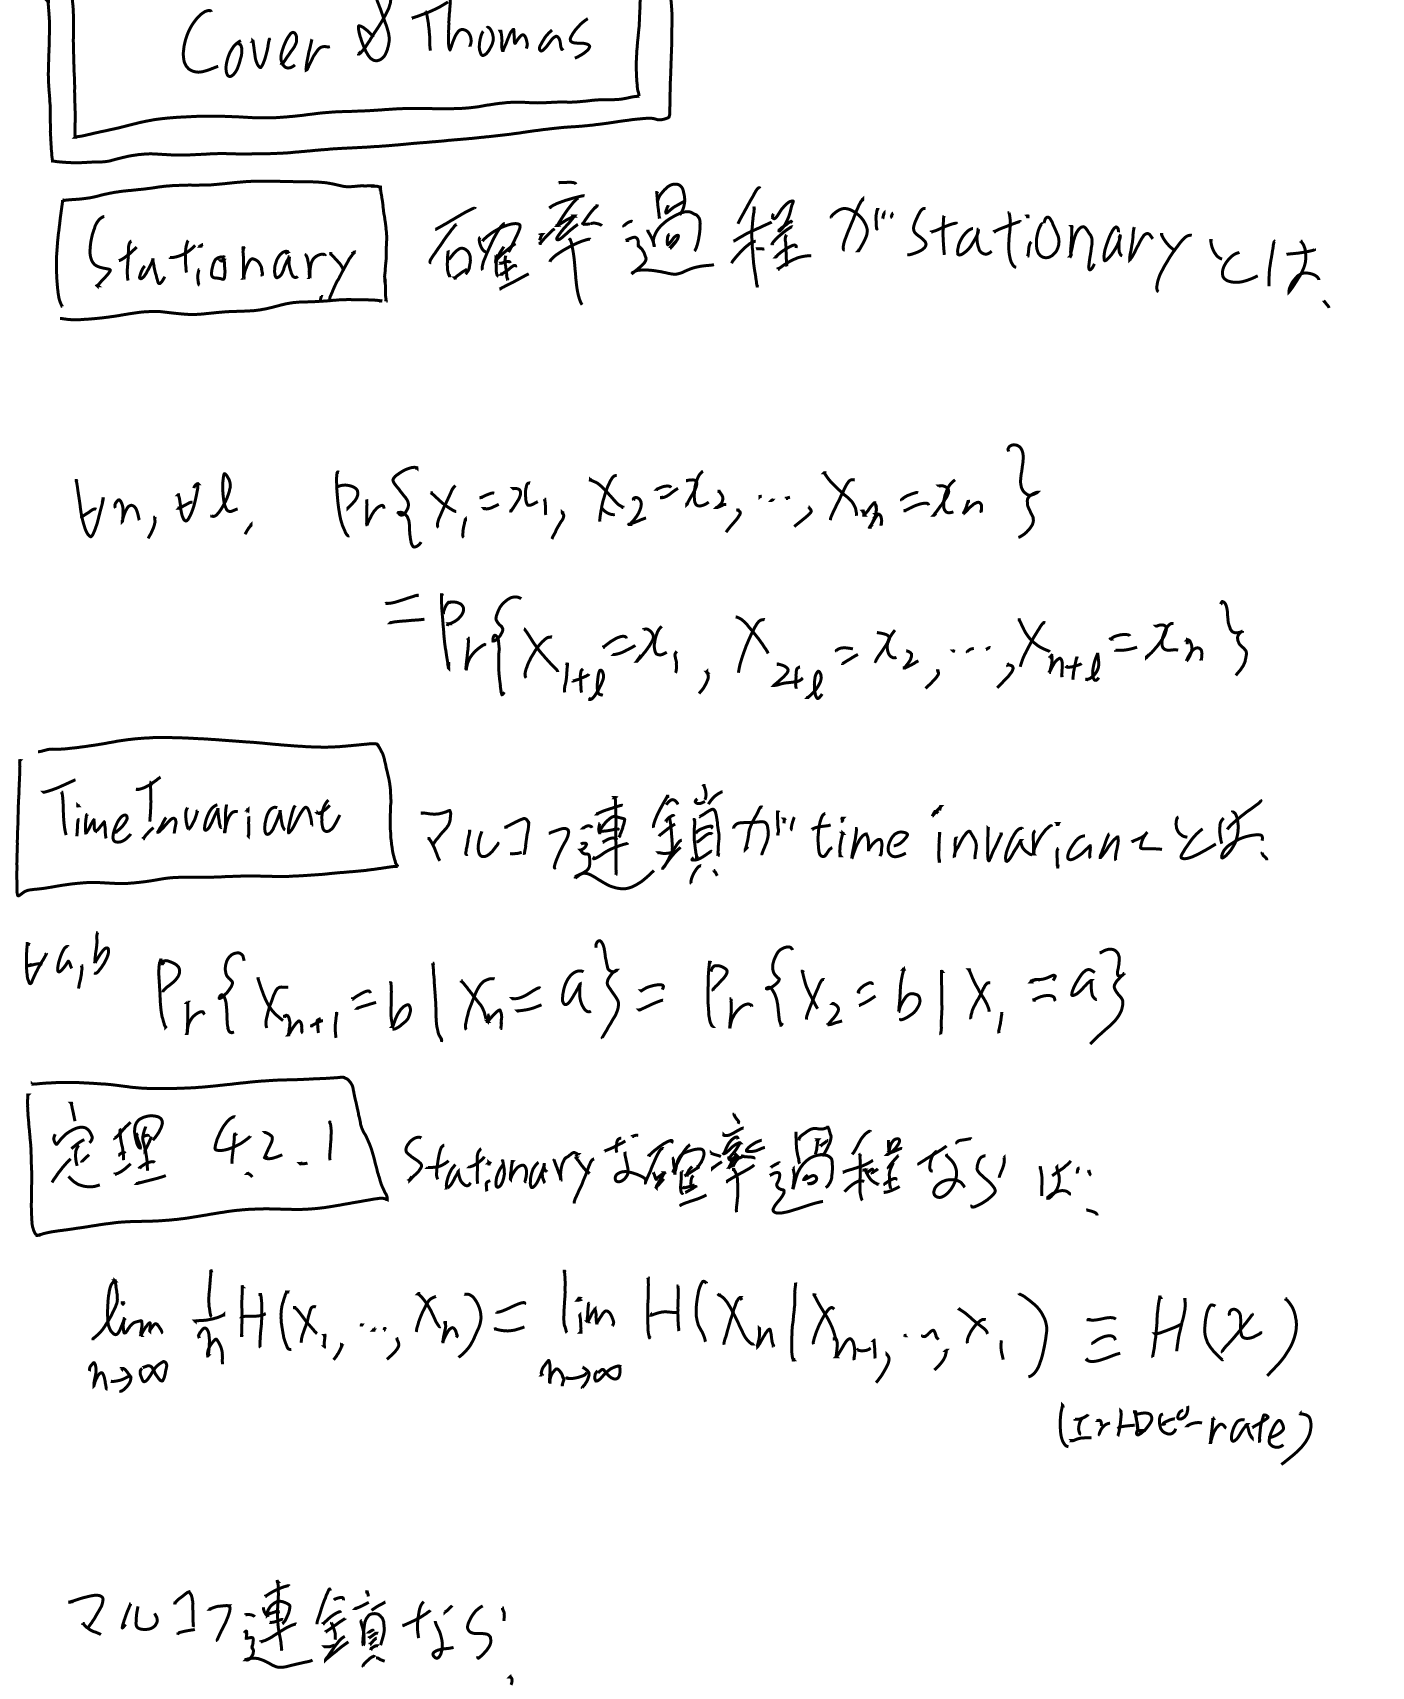 Cover & Thomas
Stationary 確率過程がstationaryとは、
∀n, ∀ℓ, Pr{X₁=x₁, X₂=x₂, ..., Xₙ=xₙ}
=Pr{X₁₊ℓ=x₁, X₂₊ℓ=x₂, ..., Xₙ₊ℓ=xₙ}
Time Invariant マルコフ連鎖がtime invariantとは、
∀a,b Pr{Xₙ₊₁=b|Xₙ=a}=Pr{X₂=b|X₁=a}
定理 4.2.1 Stationaryな確率過程ならば、
lim n→∞ 1/n H(X₁, ..., Xₙ)= lim n→∞ H(Xₙ|Xₙ₋₁, ..., X₁) ≡ H(χ)
(エントロピーrate)
マルコフ連鎖なら、